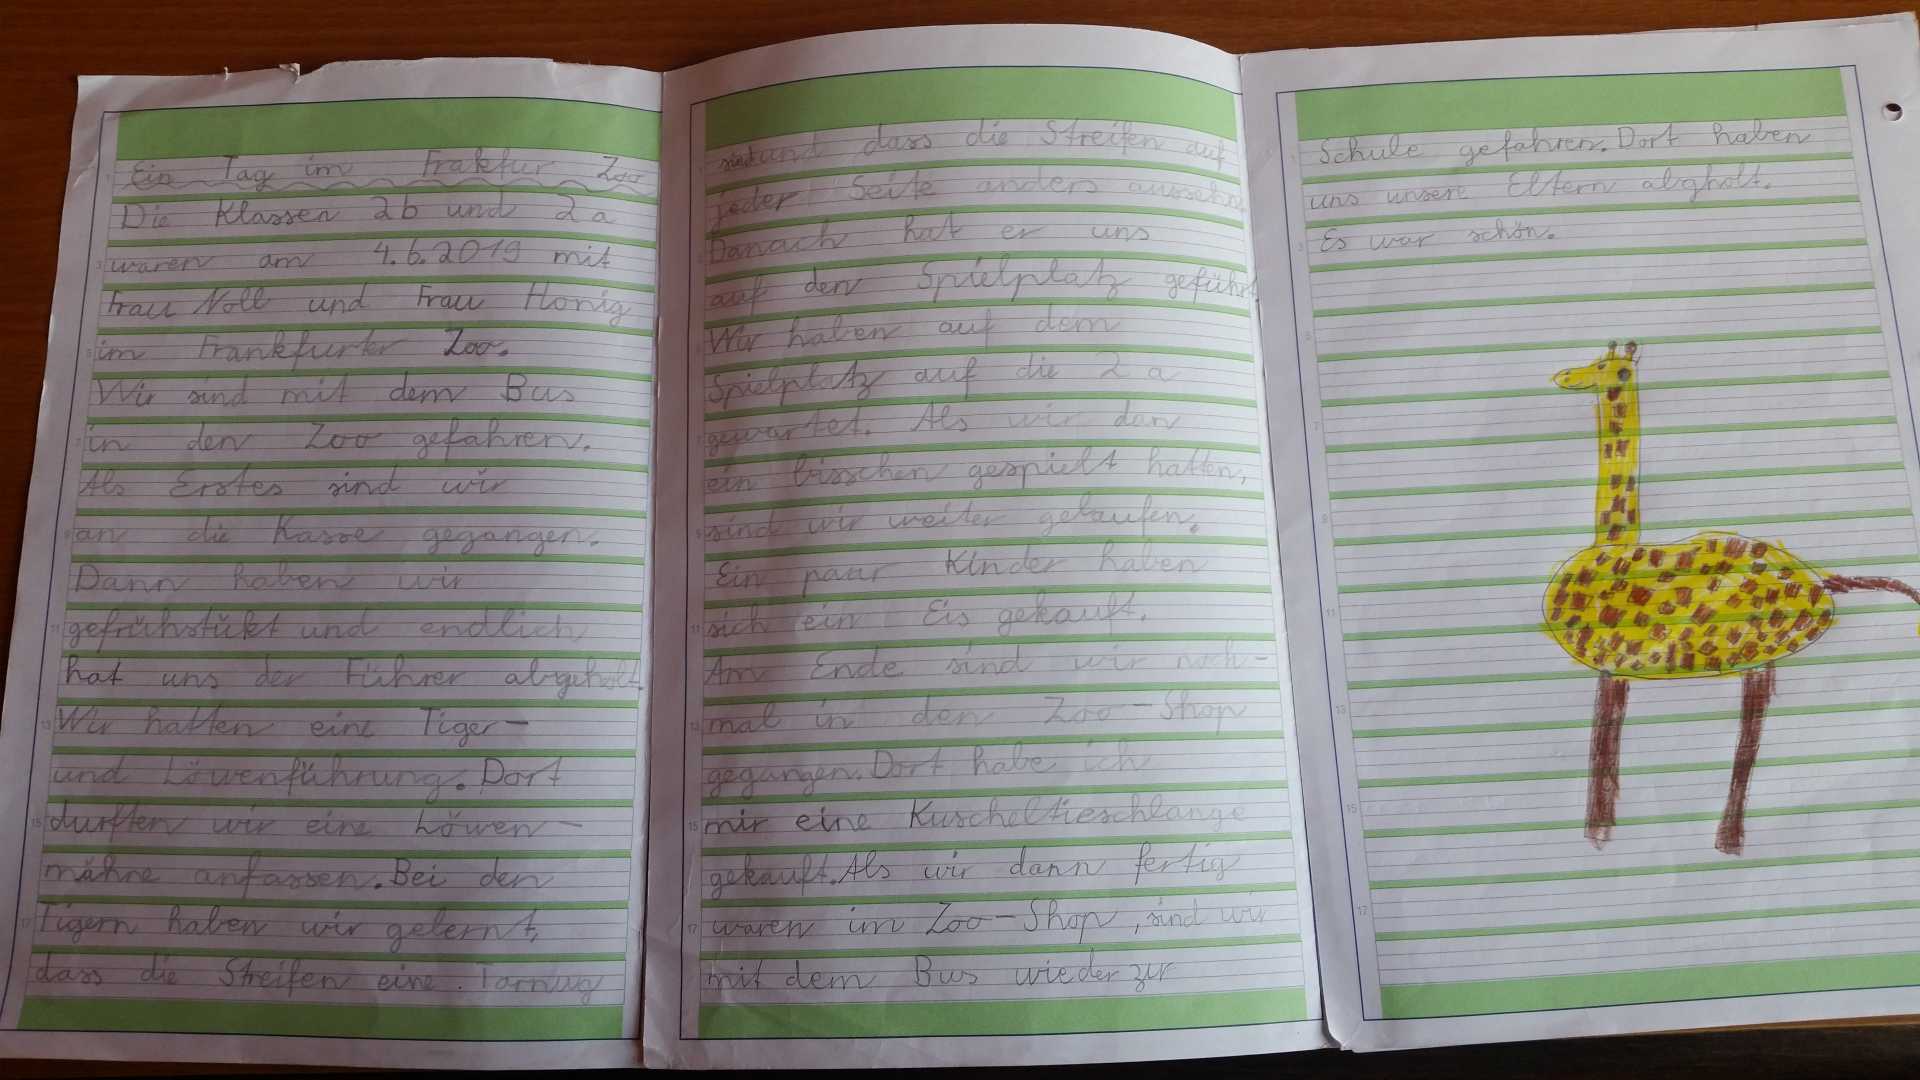 Ein Tag im Frakfur Zoo
Die Klassen 2b und 2a
waren am 4.6.2019 mit
Frau Noll und Frau Honig
im Frankfurter Zoo.
Wir sind mit dem Bus
in den Zoo gefahren.
Als Erstes sind wir
an die Kasse gegangen.
Dann haben wir
gefrühstükt und endlich
hat uns der Führer abgeholt.
Wir hatten eine Tiger-
und Löwenführung. Dort
durften wir eine Löwen-
mähne anfassen. Bei den
Tigern haben wir gelernt,
dass die Streifen eine Tarnug
sind und dass die Streifen auf
jeder Seite anders aussehn
Danach hat er uns
auf den Spielplatz geführt
Wir haben auf dem
Spielplatz auf die 2a
gewartet. Als wir dan
ein bisschen gespielt hatten,
sind wir weiter gelaufen.
Ein paar Kinder haben
sich ein Eis gekauft.
Am Ende sind wir noch-
mal in den Zoo-Shop
gegangen. Dort habe ich
mir eine Kuscheltieschlange
gekauft. Als wir dann fertig
waren im Zoo-Shop, sind wir
mit dem Bus wieder zur
Schule gefahren. Dort haben
uns unsere Eltern abgholt.
Es war schön.